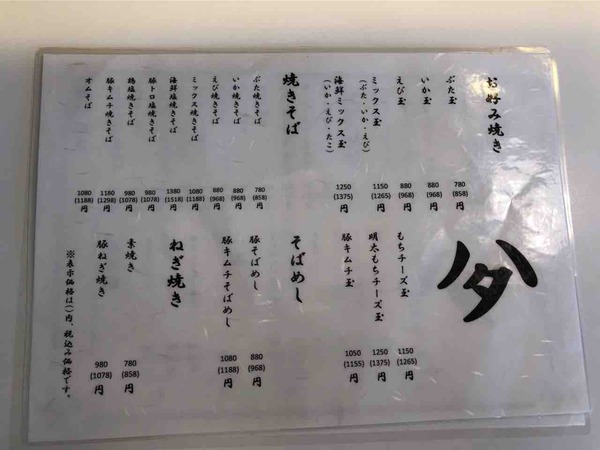 お好み焼き
ぶた玉 780 (858) 円
いか玉 880 (968) 円
えび玉 880 (968) 円
ミックス玉 1150 (1265) 円
(ぶた・いか・えび)
海鮮ミックス玉 1250 (1375) 円
(いか・えび・たこ)
焼きそば
ぶた焼きそば 780 (858) 円
いか焼きそば 880 (968) 円
えび焼きそば 880 (968) 円
ミックス焼きそば 1080 (1188) 円
海鮮塩焼きそば 1380 (1518) 円
豚トロ塩焼きそば 980 (1078) 円
鶏塩焼きそば 980 (1078) 円
豚キムチ焼きそば 1180 (1298) 円
オムそば 1080 (1188) 円
もちチーズ玉 1150 (1265) 円
明太もちチーズ玉 1250 (1375) 円
豚キムチ玉 1050 (1155) 円
そばめし
豚そばめし 880 (968) 円
豚キムチそばめし 1080 (1188) 円
ねぎ焼き
素焼き 780 (858) 円
豚ねぎ焼き 980 (1078) 円
※表示価格は()内、税込み価格です。